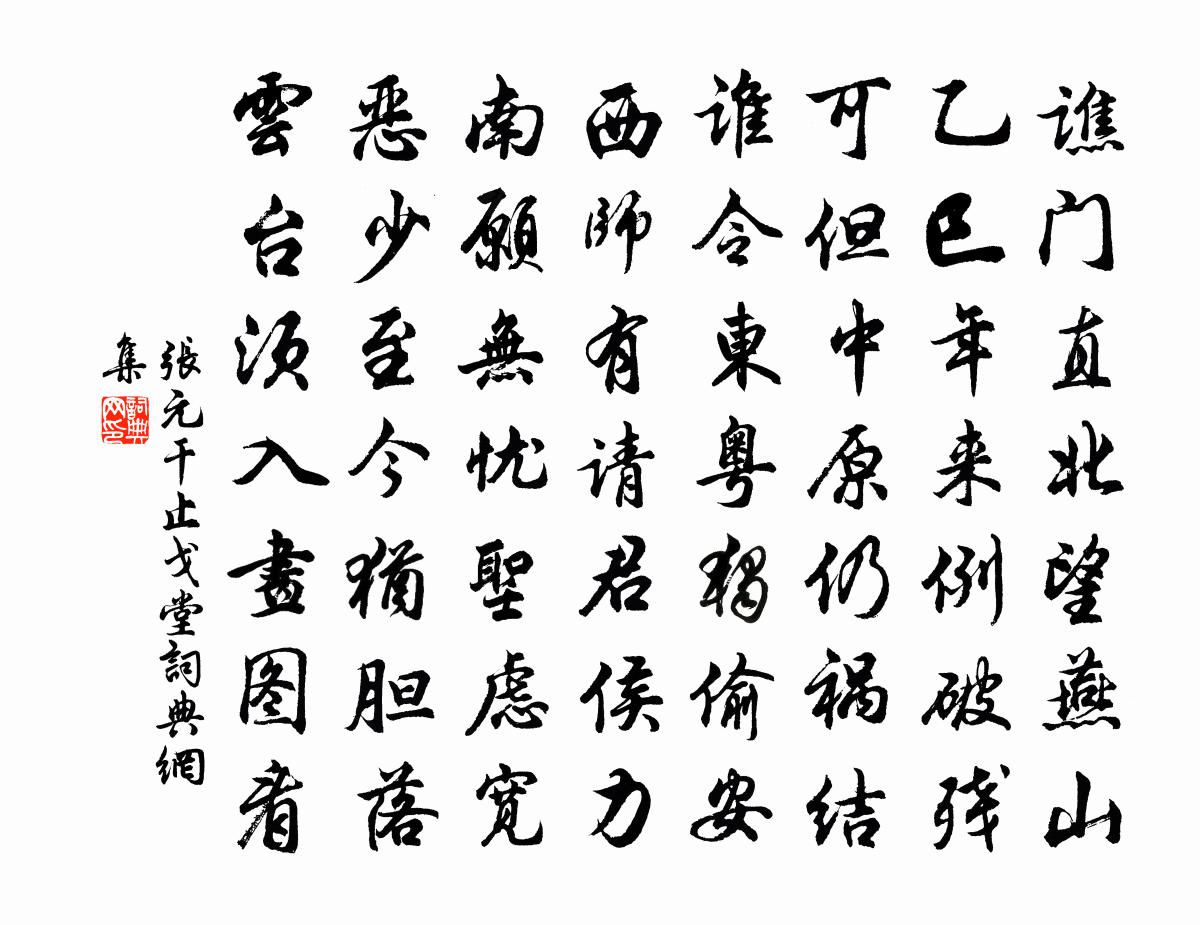 谯门直北望燕山
乙巳年来例破残
可但中原仍祸结
谁令東粤独偷安
西師有请君侯力
南顾無忧聖虑宽
恶少至今犹胆落
雲台须入畫图看
張元干止戈堂詞典網
集
詞典网印